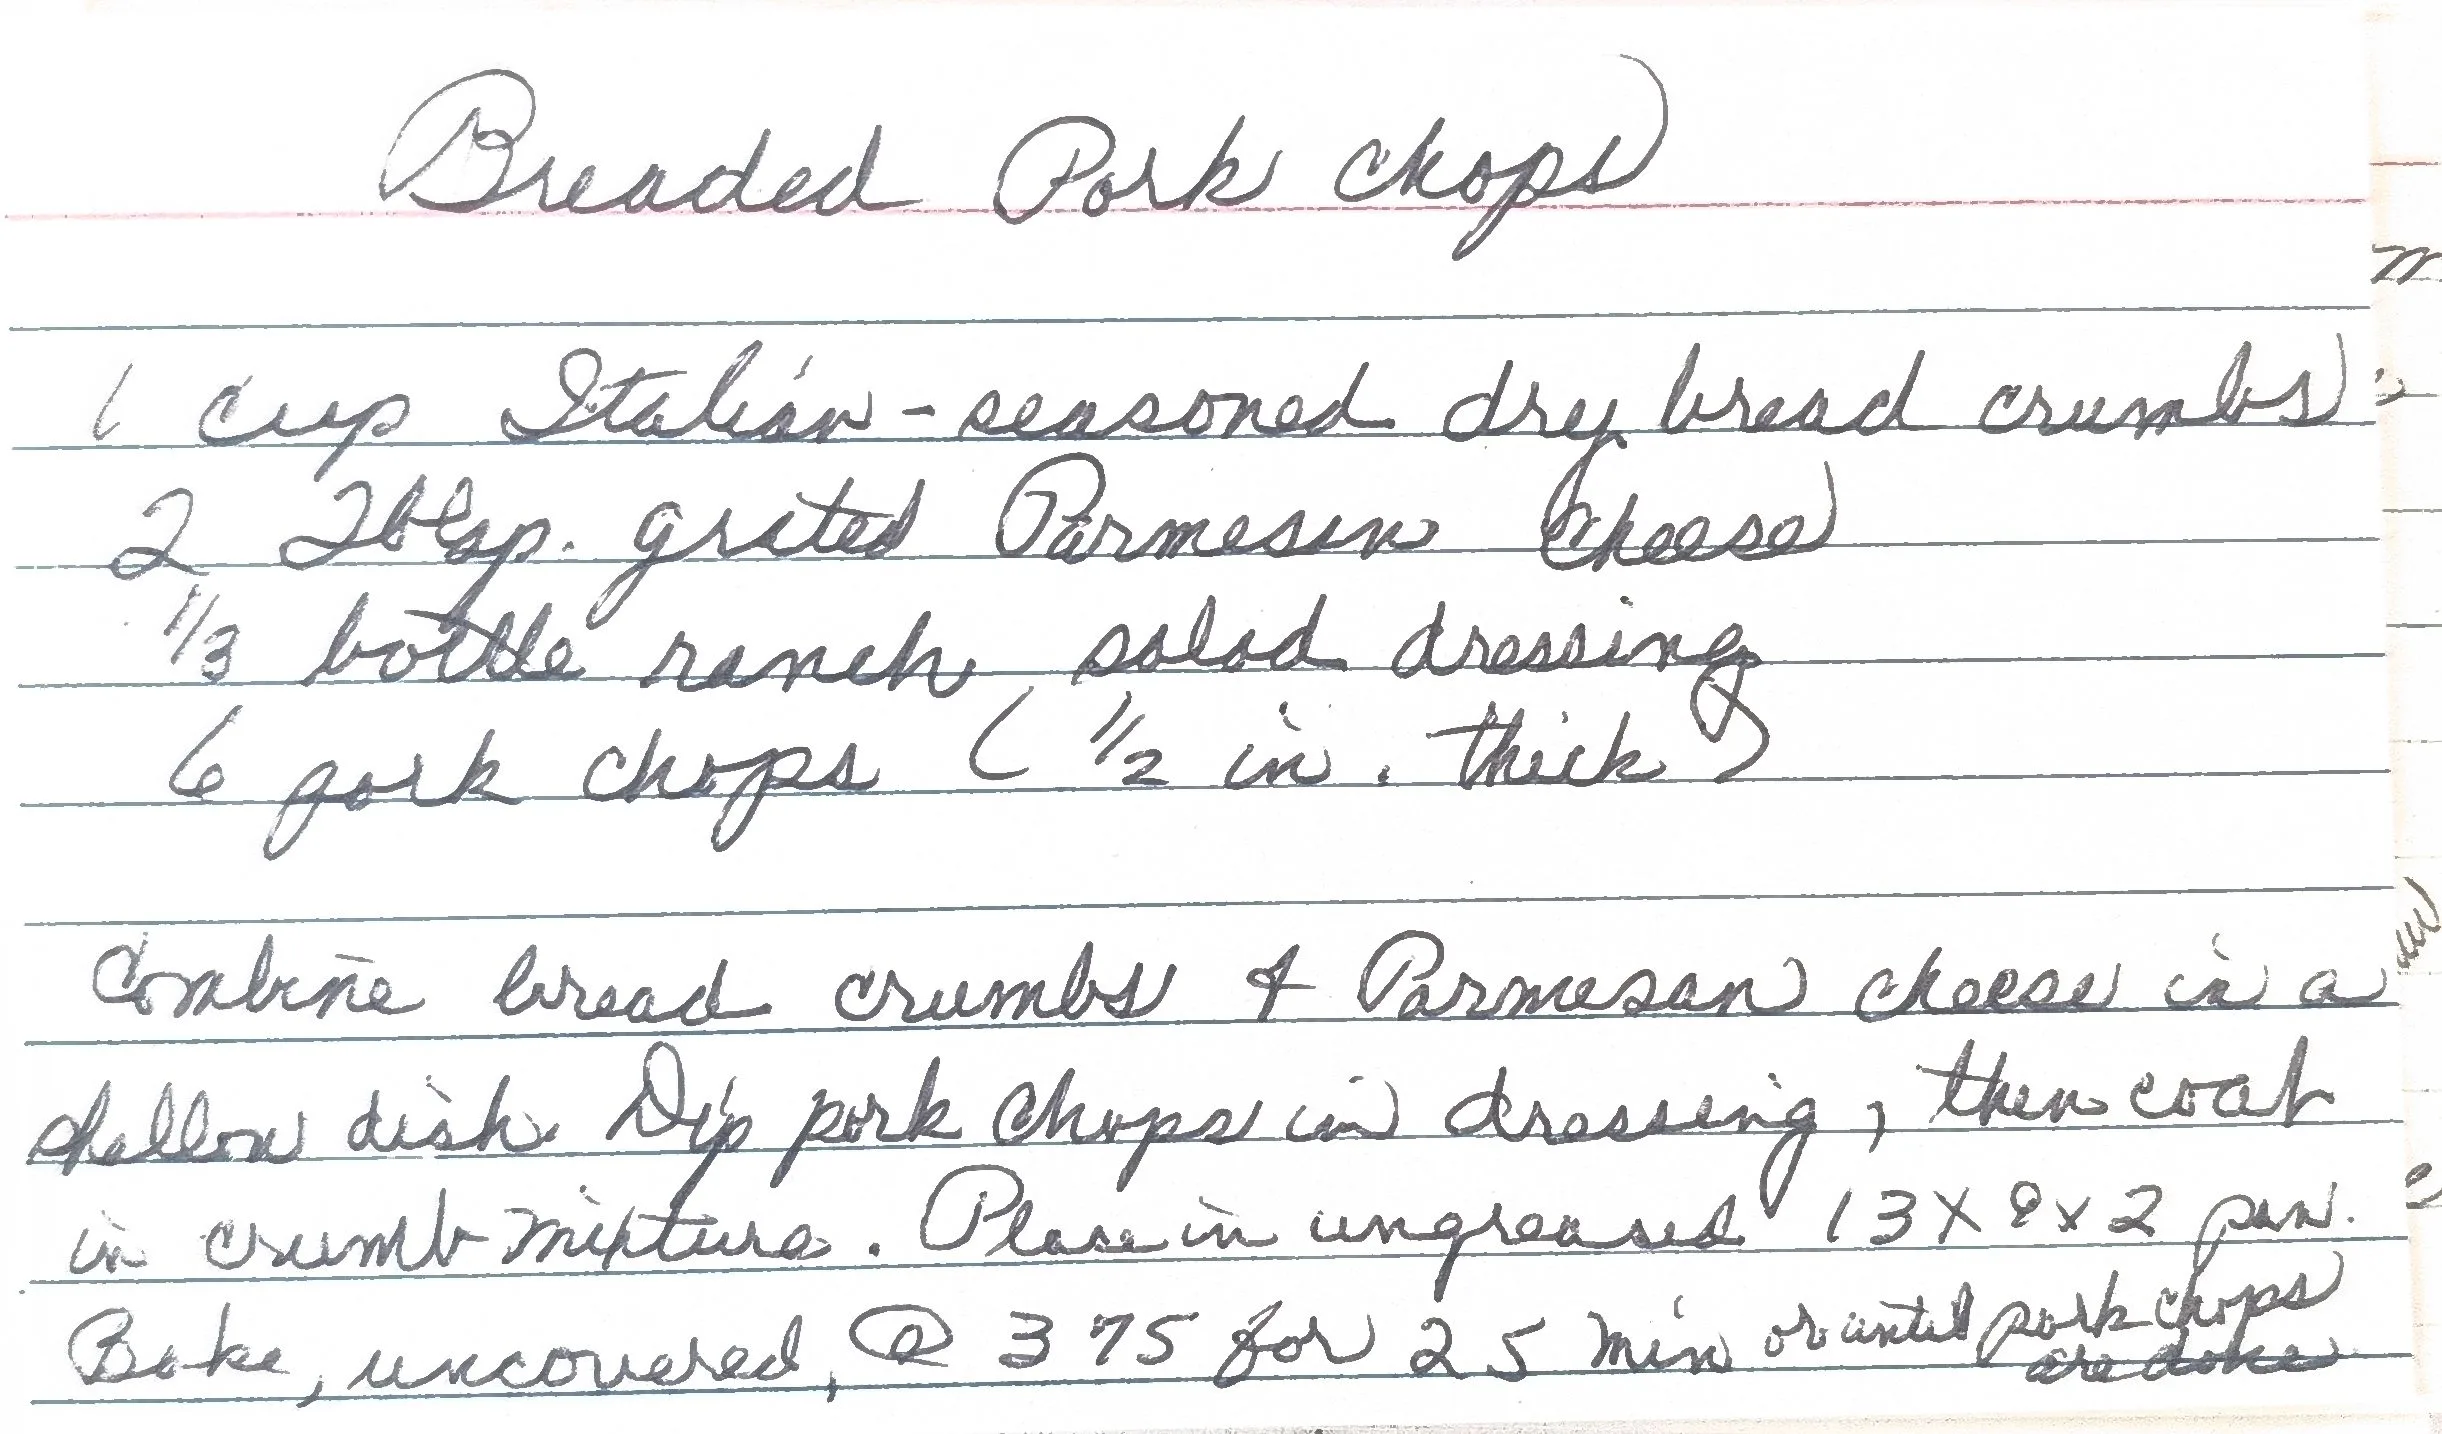 Breaded Pork Chops
1 cup Italian-seasoned dry bread crumbs
2 Tblsp. grated Parmesan Cheese
1/3 bottle ranch salad dressing
6 pork chops (1/2 in. thick)
Combine bread crumbs & Parmesan cheese in a
shallow dish. Dip pork chops in dressing, then coat
in crumb mixture. Place in ungreased 13 x 9 x 2 pan.
Bake, uncovered, @ 375 for 25 min or until pork chops
are done